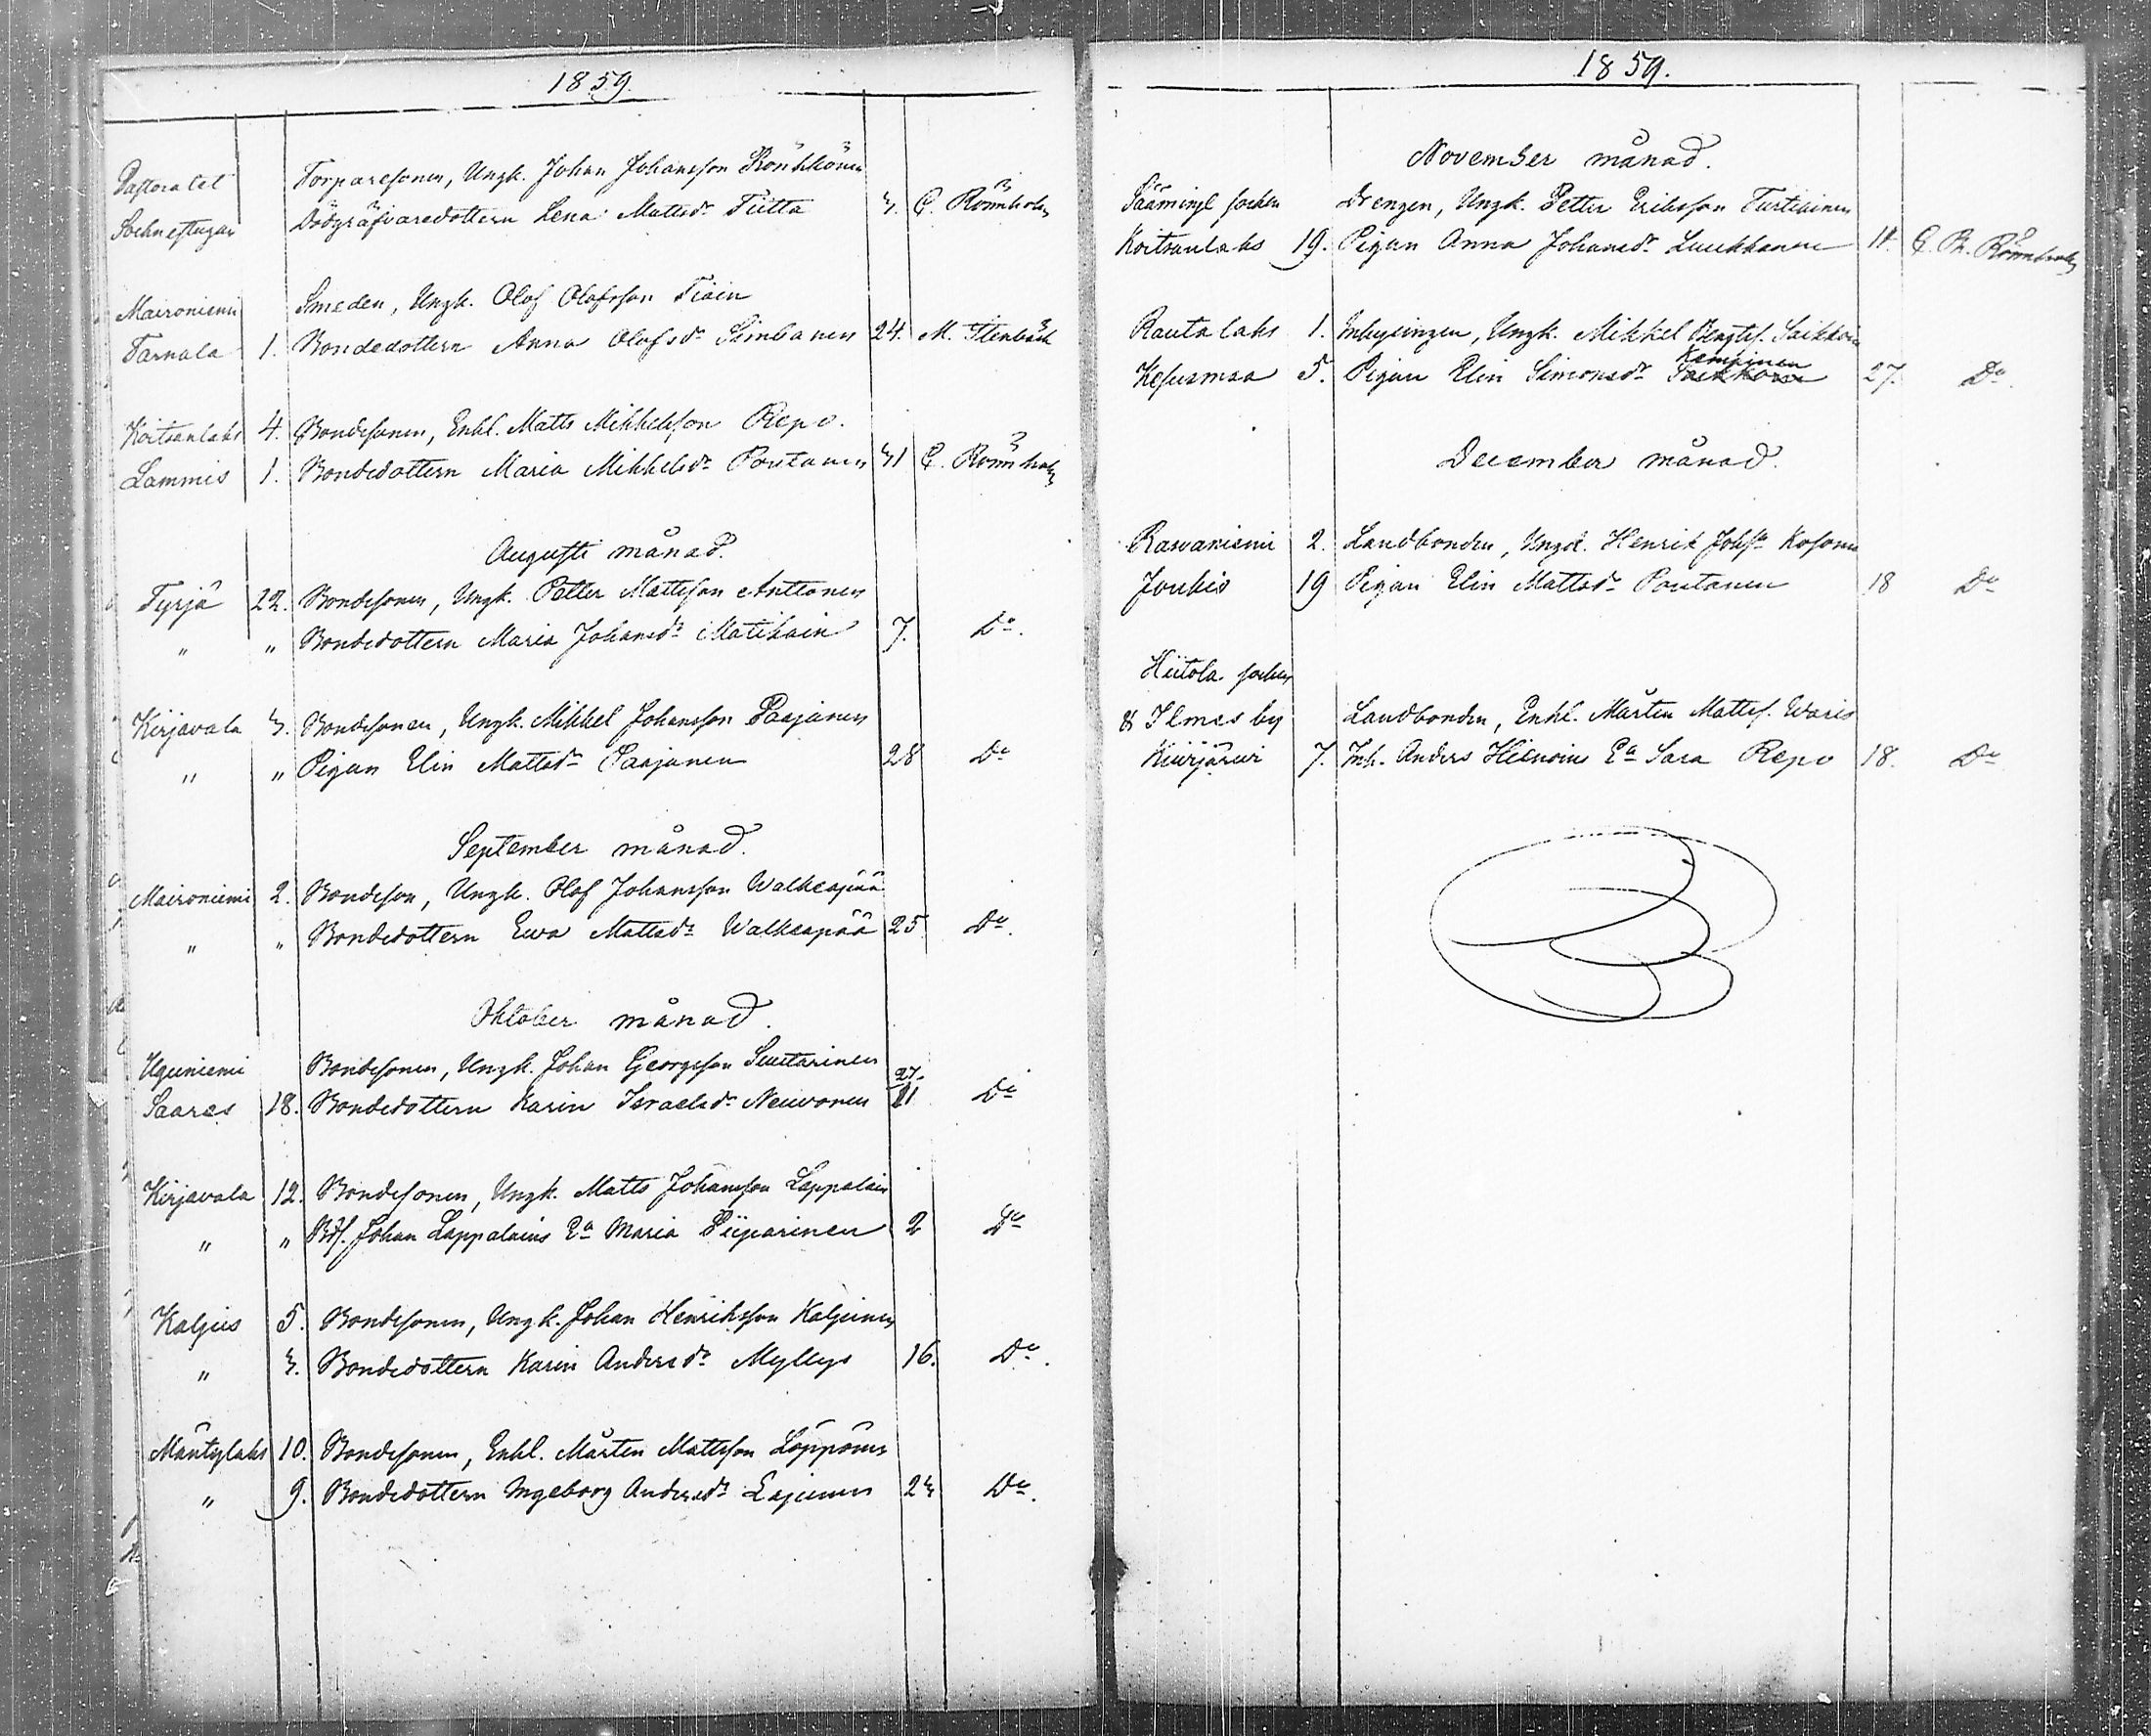 1859.
Pastoratet Torparesonen, Ungk. Johan Johansson Rönkkönen
Sockenstugan Dödgräfvaredottern Lena Mattsdr Tiitta 3. C. Rönnholm
Maironiemi Smeden, Ungk. Olof Olofsson Tiain
Tarnala 1. Bondedottern Anna Olofsdr Simbanen 24. M. Stenbäck
Koitsanlaks 4. Bondesonen, Enkl. Matts Mikkelsson Repo.
Lammis 1. Bondedottern Maria Mikkelsdr Poutanen 31 C. Rönnholm
Augusti månad.
Tyrjä 22. Bondesonen, Ungk. Petter Mattsson Anttonen
" " Bondedottern Maria Johansdr Matikain 7. Do.
Kirjavala 3. Bondesonen, Ungk. Mikkel Johansson Paajanen
" " Pigan Elin Mattsdr Paajanen 28 Do
September månad.
Maironiemi 2. Bondeson, Ungk. Olof Johansson Walkeapää
" " Bondedottern Ewa Mattsdr Walkeapää 25 Do.
Oktober månad.
Uguniemi Bondesonen, Ungk. Johan Georgsson Suutarinen 27.
Saares 18. Bondedottern Karin Israelsdr Neuvonen 21 Do
Kirjavala 12. Bondesonen, Ungk. Matts Johansson Lappalain
" " Bds. Johan Lappalains Ea Maria Piiparinen 2 Do
Kaljus 5. Bondesonen, Ungk. Johan Henriksson Kaljunen
" 3. Bondedottern Karin Andersdr Myllys 16. Do.
Mäntylaks 10. Bondesonen, Enkl. Mårten Mattsson Löppönen
" 9. Bondedottern Ingeborg Andersdr Lajunen 23 Do.
1859.
November månad.
Sääminge socken Drengen, Ungk. Petter Eriksson Turtiainen
Koitsanlaks 19. Pigan Anna Johansdr Luukkanen 11. C. R. Rönnholm
Rautalaks 1. Inhysingen, Ungk. Mikkel Bengtss. Saikkon
Kesusmaa 5. Pigan Elin Simonsdr Saikkon Kempinen 27. Do.
December månad.
Rawaniemi 2. Landbonden, Ungk. Henrik Johsn Kosonen
Joukio 19 Pigan Elin Mattsdr Poutanen 18 Do
Hiitola socken
& Ilmes by Landbonden, Enkl. Mårten Mattss. Waris
Kiurjärvi 7. Inh. Anders Hienoins Ea Sara Repo 18. Do